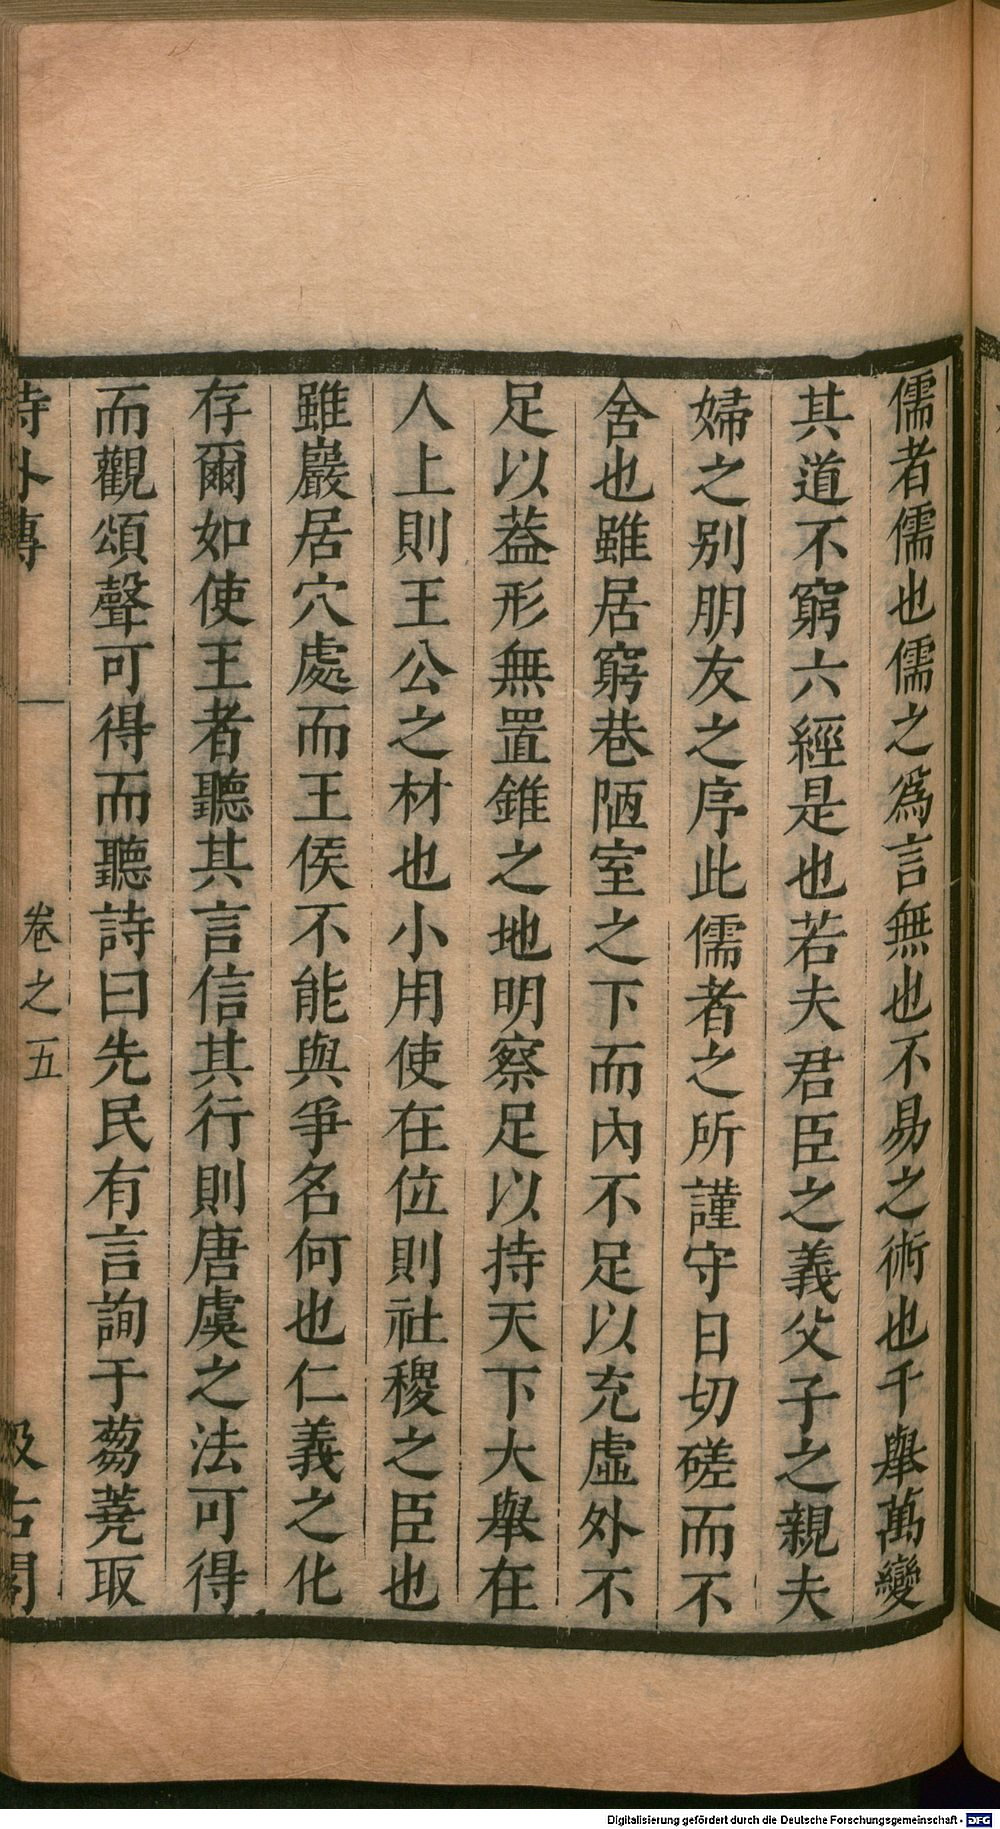 儒者儒也儒之爲言無也不易之術也千舉萬變
其道不窮六經是也若夫君臣之義父子之親夫
婦之別朋友之序此儒者之所謹守日切磋而不
舍也雖居窮巷陋室之下而內不足以充虛外不
足以葢形無置錐之地明察足以持天下大舉在
人上則王公之材也小用使在位則社稷之臣也
雖巖居穴處而王侯不能與爭名何也仁義之化
存爾如使王者聽其言信其行則唐虞之法可得
而觀頌聲可得而聽詩曰先民有言詢于蒭蕘取
詩外傳 卷之五 汲古閣
Digitalisierung gefördert durch die Deutsche Forschungsgemeinschaft - DFG